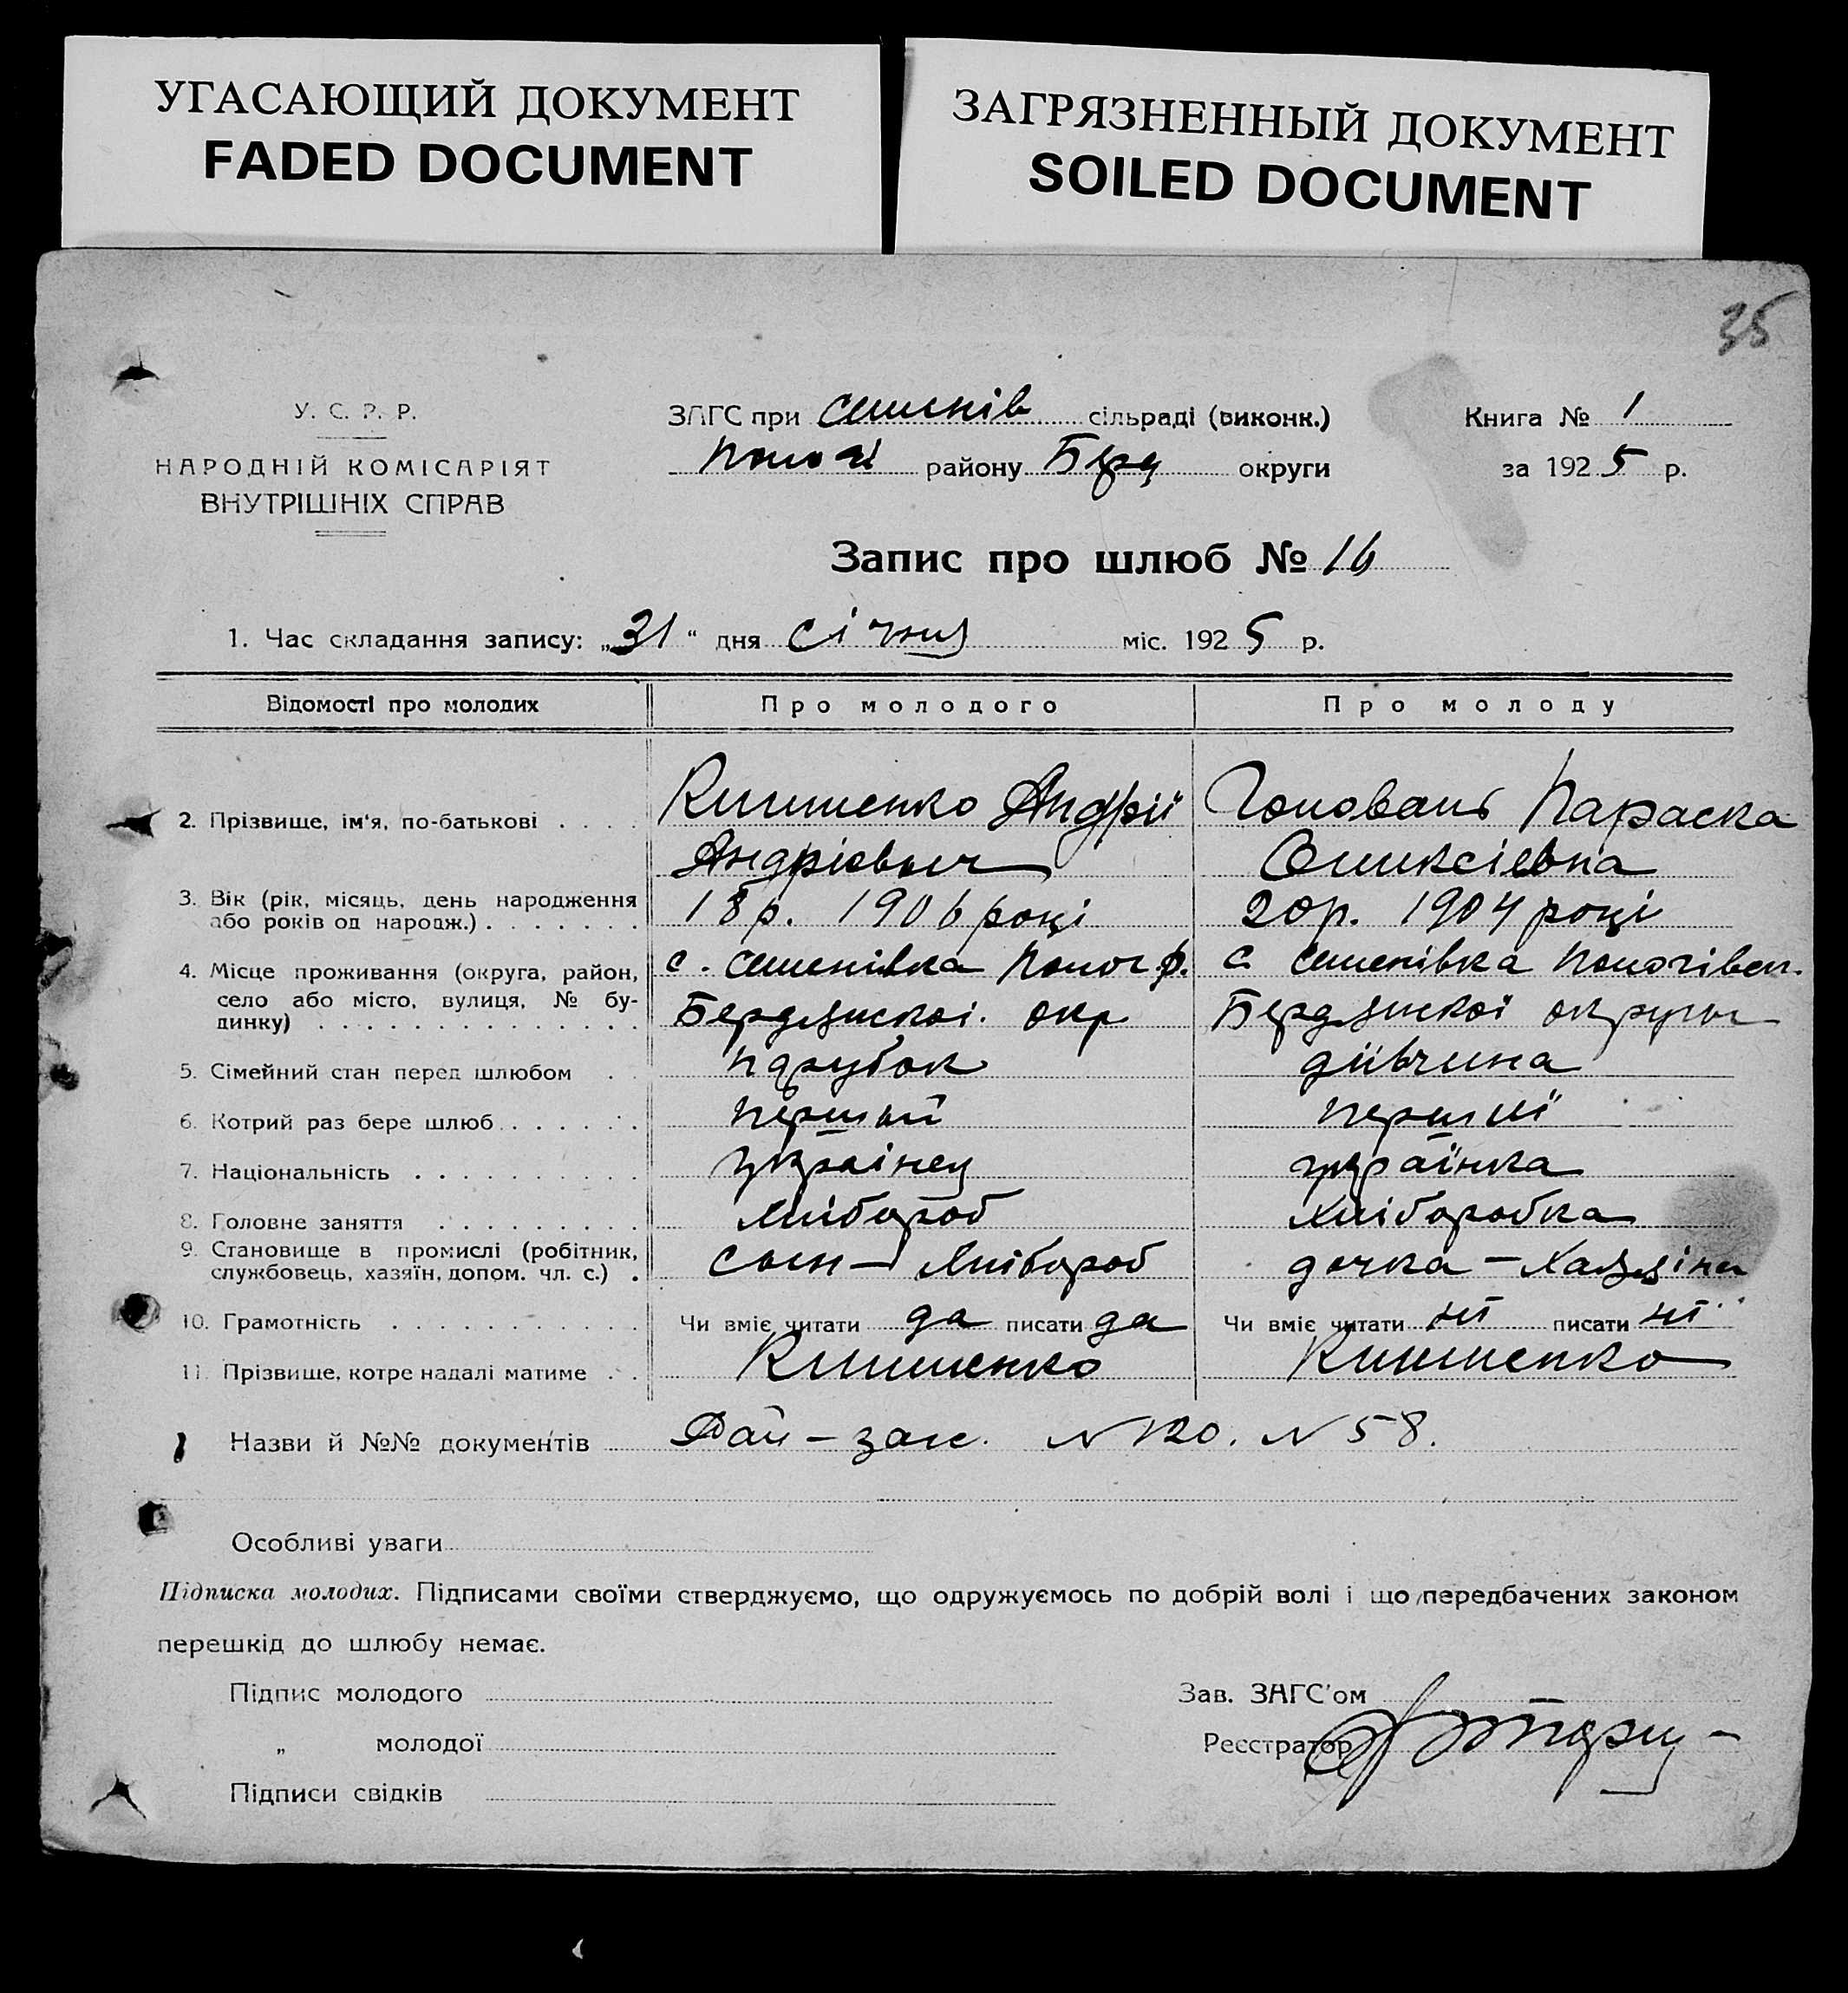 УГАСАЮЩИЙ ДОКУМЕНТ
FADED DOCUMENT
ЗАГРЯЗНЕННЫЙ ДОКУМЕНТ
SOILED DOCUMENT
35
У. С. Р. Р.
НАРОДНІЙ КОМІСАРІЯТ
ВНУТРІШНІХ СПРАВ
ЗАГС при Семенів сільраді (виконк.)
Пологі району Берд округи
Книга № 1
за 1925 р.
Запис про шлюб № 16
1. Час складання запису: „31“ дня січня міс. 1925 р.
Відомості про молодих Про молодого Про молоду
2. Прізвище, ім'я, по-батькові . . . . Андрій Параска
Андрієвич Оликсіевна
3. Вік (рік, місяць, день народження
або років од народж.) . . . . . . . 18 р. 1906 році 20 р. 1904 році
4. Місце проживання (округа, район,
село або місто, вулиця, № бу-
динку) . . . . . . . . . . . . . .
с. Семенівка Полог р. с Семенівка
Бердянскоі. окр Бердянскоі округы
5. Сімейний стан перед шлюбом . . парубок дівчина
6. Котрий раз бере шлюб . . . . . . первый
7. Національність . . . . . . . . . . українец українка
8. Головне заняття . . . . . . . . . хлібороб хліборобка
9. Становище в промислі (робітник,
службовець, хазяїн, допом. чл. с.) . сын — хлібороб дочка — хазяіна
10. Грамотність . . . . . . . . . . . Чи вміє читати да писати да Чи вміє читати ні писати ні
11. Прізвище, котре надалі матиме . .
Назви й №№ документів N 120. N 58.
Особливі уваги
Підписка молодих. Підписами своїми стверджуємо, що одружуємось по добрій волі і що передбачених законом
перешкід до шлюбу немає.
Підпис молодого
„ молодої
Підписи свідків
Зав. ЗАГС'ом
Реєстратор